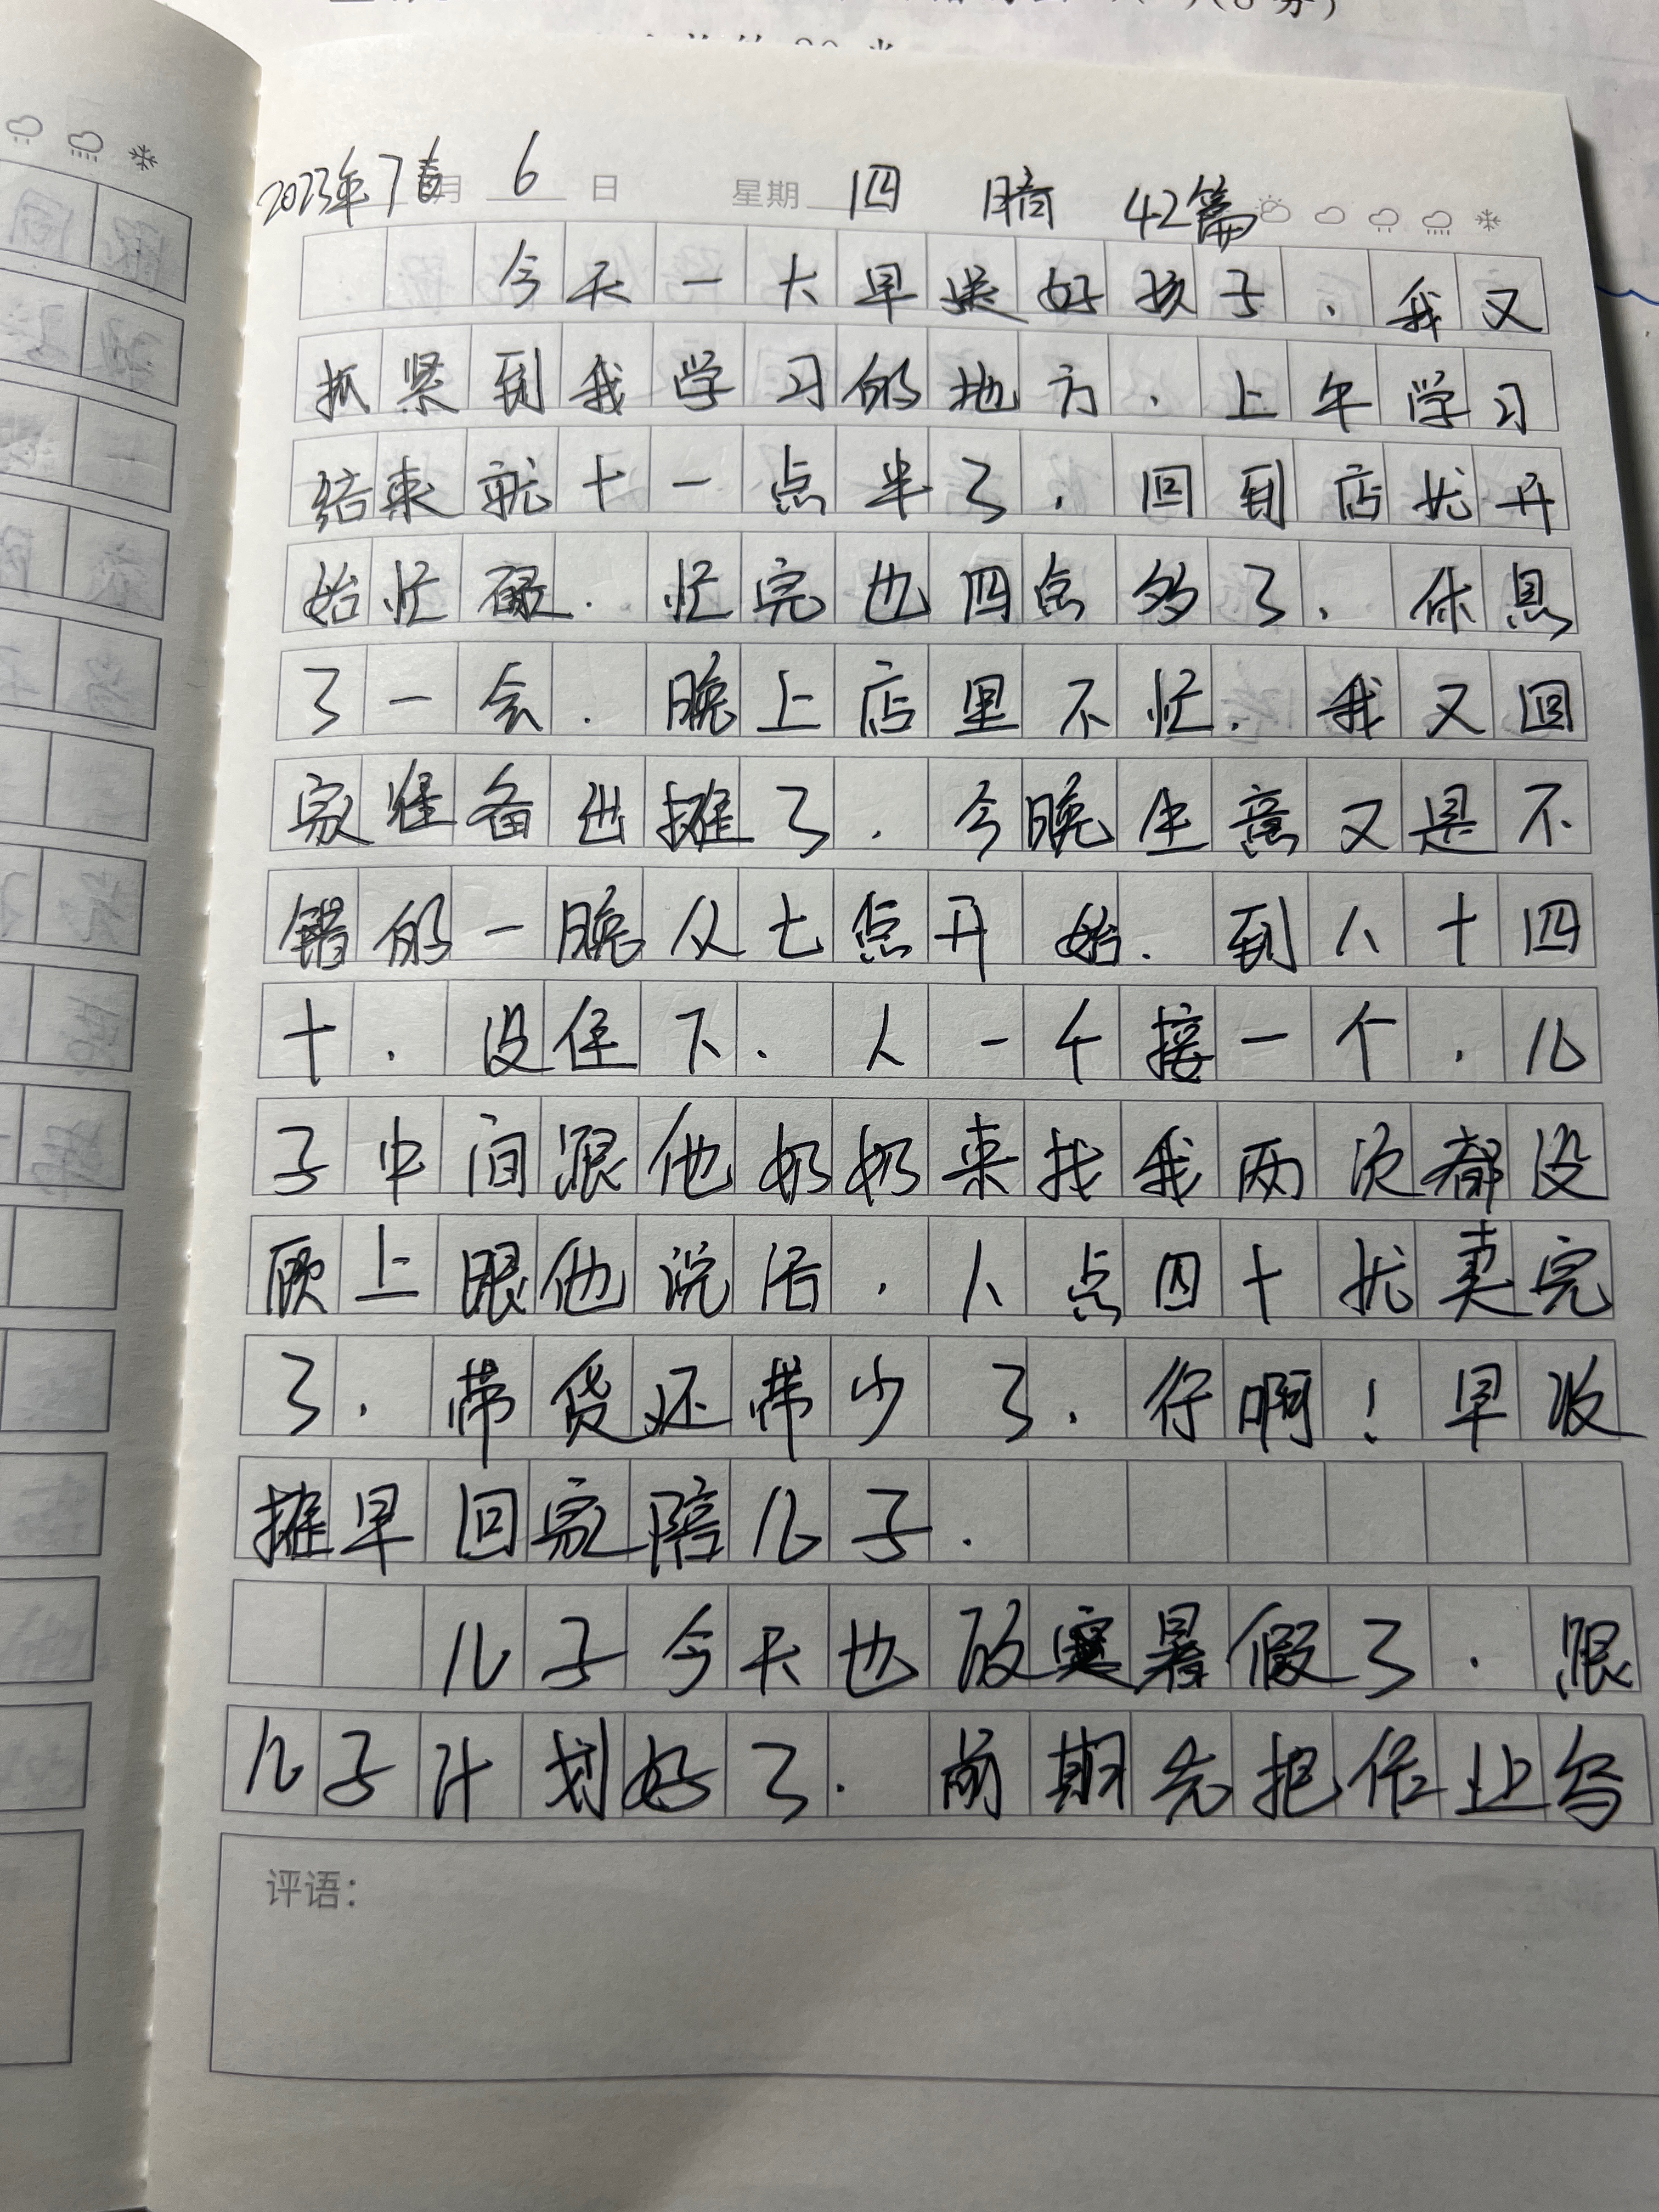 2023年7月 6 日 星期 四 晴 42篇
今天一大早送好孩子.我又
抓紧到我学习的地方.上午学习
结束就十一点半了.回到店扰开
始忙碌.忙完也四点多了.休息
了一会.晚上店里不忙.我又回
家准备出摊了.今晚生意又是不
错的一晚从七点开始.到八十四
十.没住下.人一个接一个.儿
子中间跟他奶奶来找我两次都没
顾上跟他说话.八点四十扰卖完
了.带货还带少了.行啊！早收
摊早回家陪儿子.
儿子今天也放寒暑假了.跟
儿子计划好了.前期先把作业写
评语：